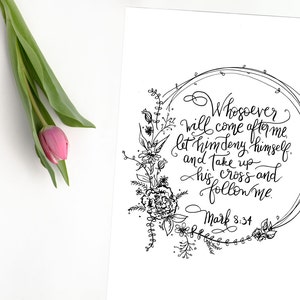 Whosoever
will come after me,
let him deny himself,
and take up
his cross and
follow me.
Mark 8:34